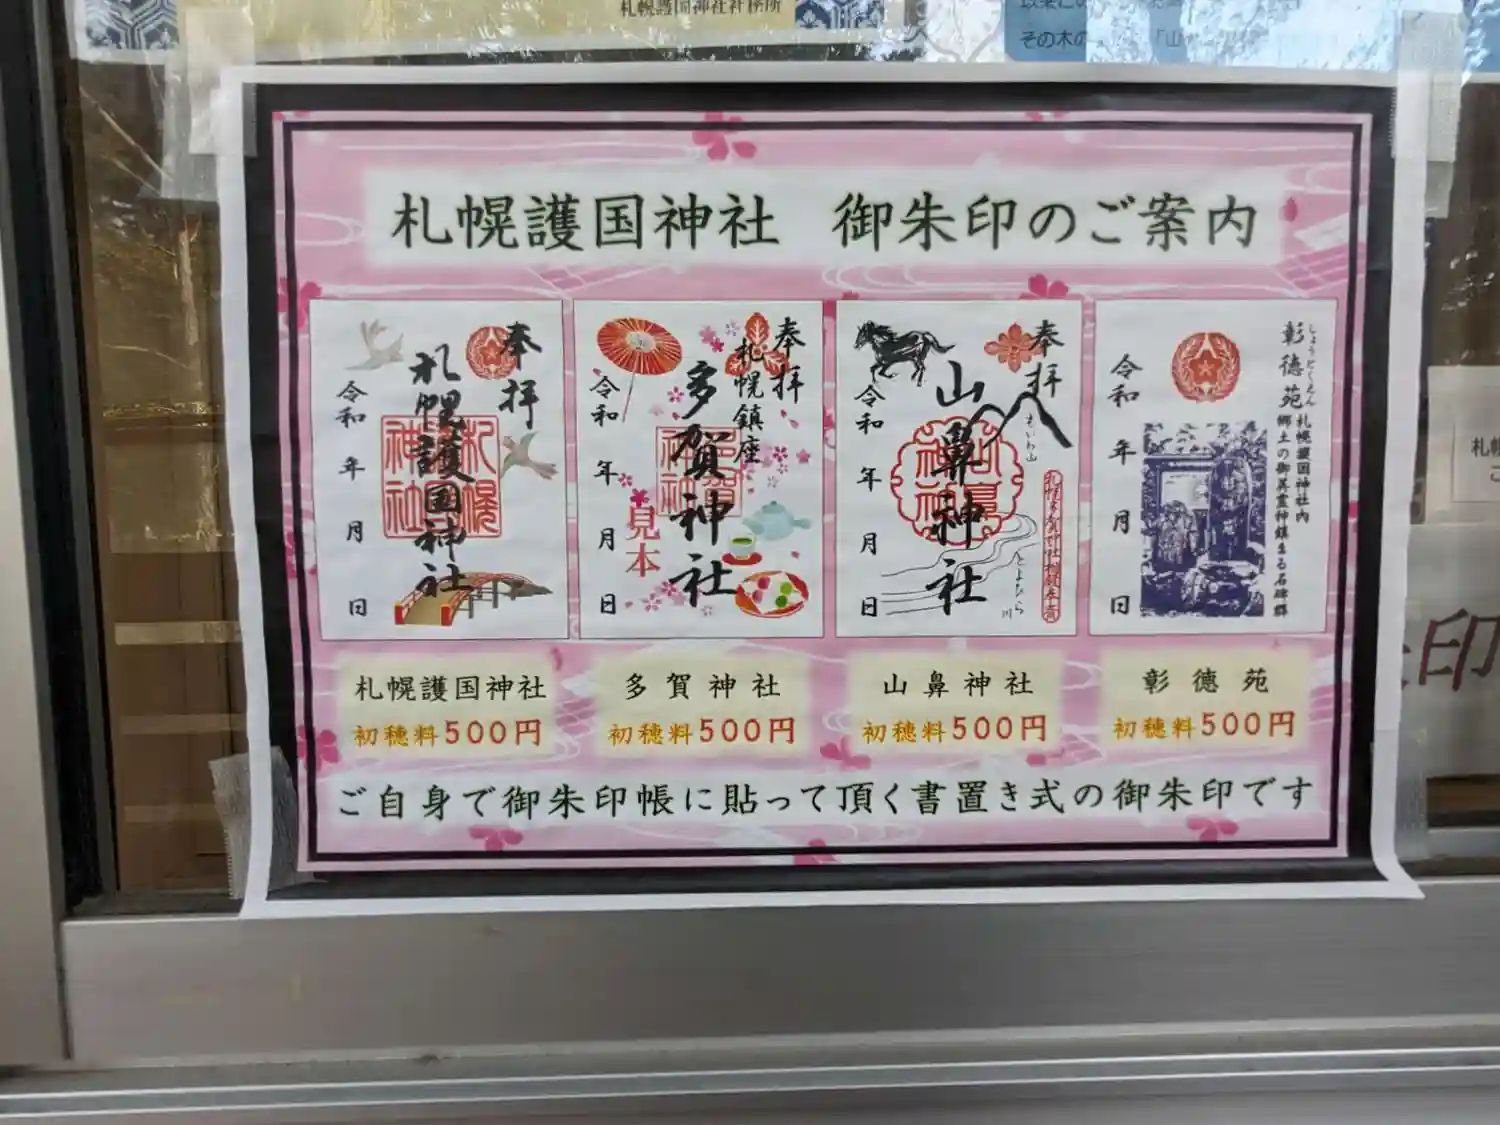 札幌護国神社社務所
その木の
札幌護国神社　御朱印のご案内
奉拝
札幌護国神社
令和　年　月　日
奉拝
札幌鎮座
多賀神社
見本
令和　年　月　日
奉拝
山鼻神社
もいわ山
とよひら川
令和　年　月　日
しょうとくえん
彰徳苑
札幌護国神社内
郷土の御英霊神鎮まる石碑群
令和　年　月　日
札幌護国神社
初穂料500円
多賀神社
初穂料500円
山鼻神社
初穂料500円
彰徳苑
初穂料500円
ご自身で御朱印帳に貼って頂く書置き式の御朱印です
印